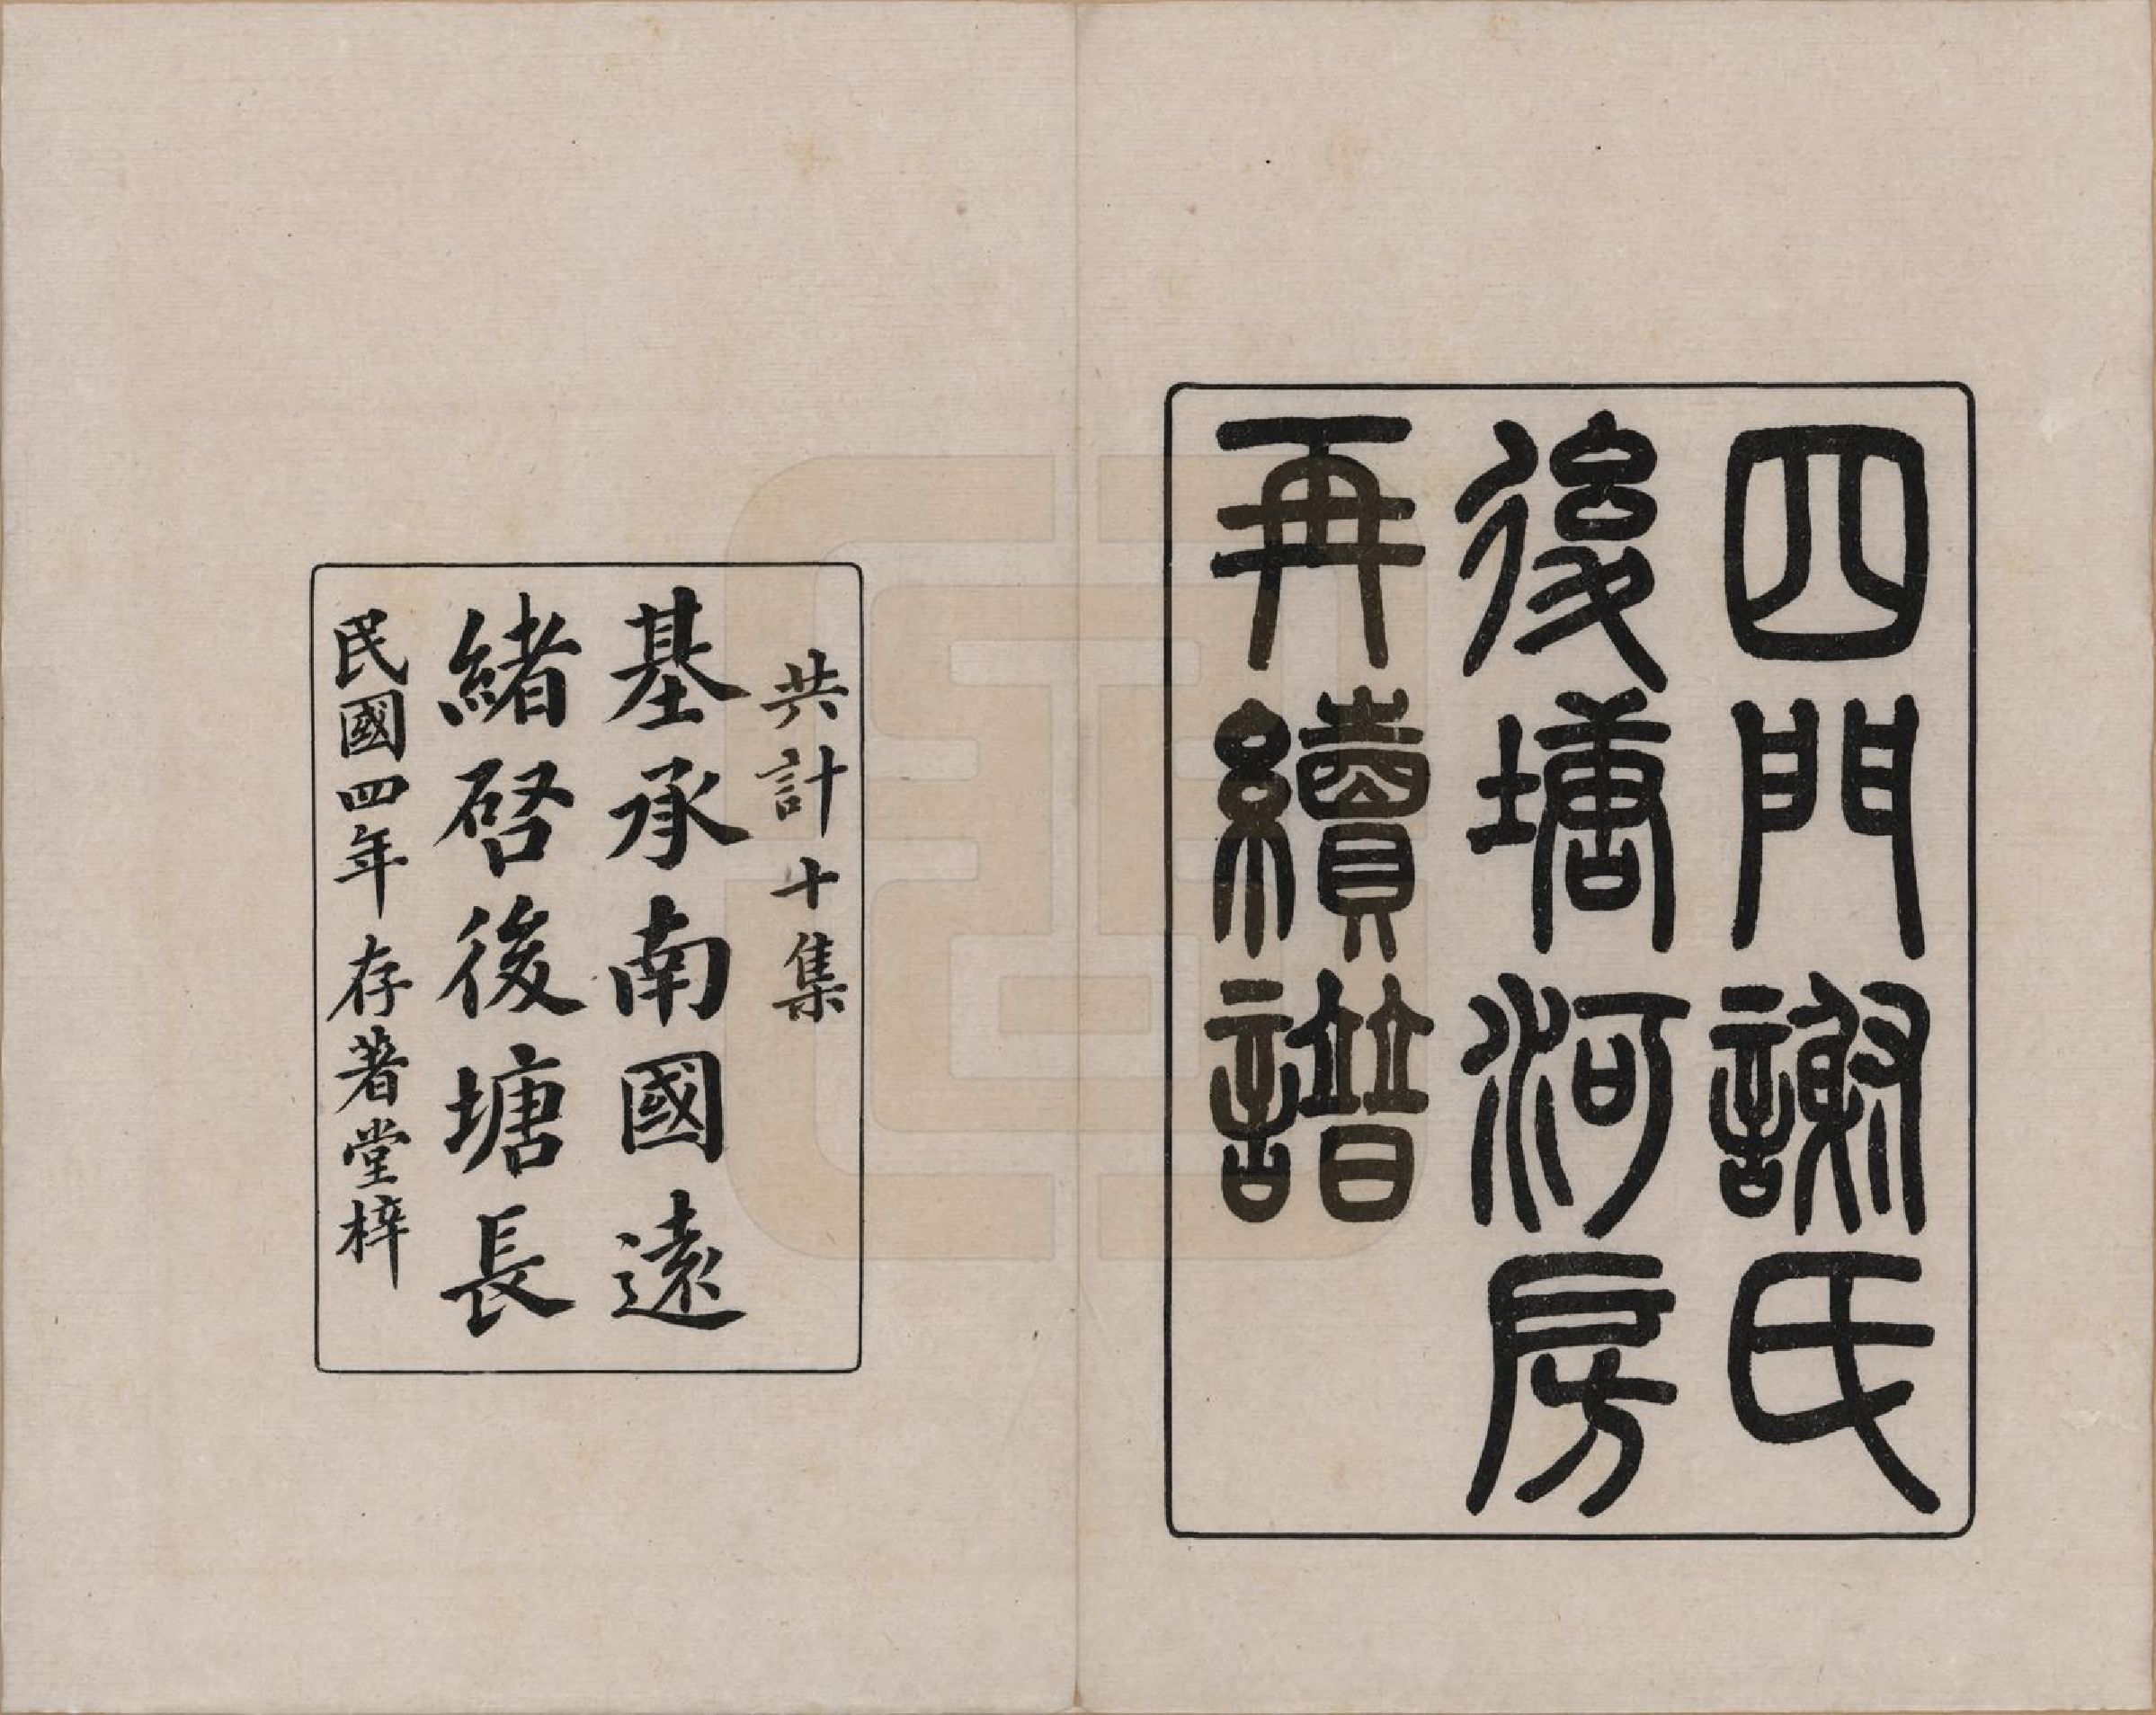 四門謝氏
後塘河房
再續譜
共計十集
基承南國遠
緒啓後塘長
民國四年 存著堂梓